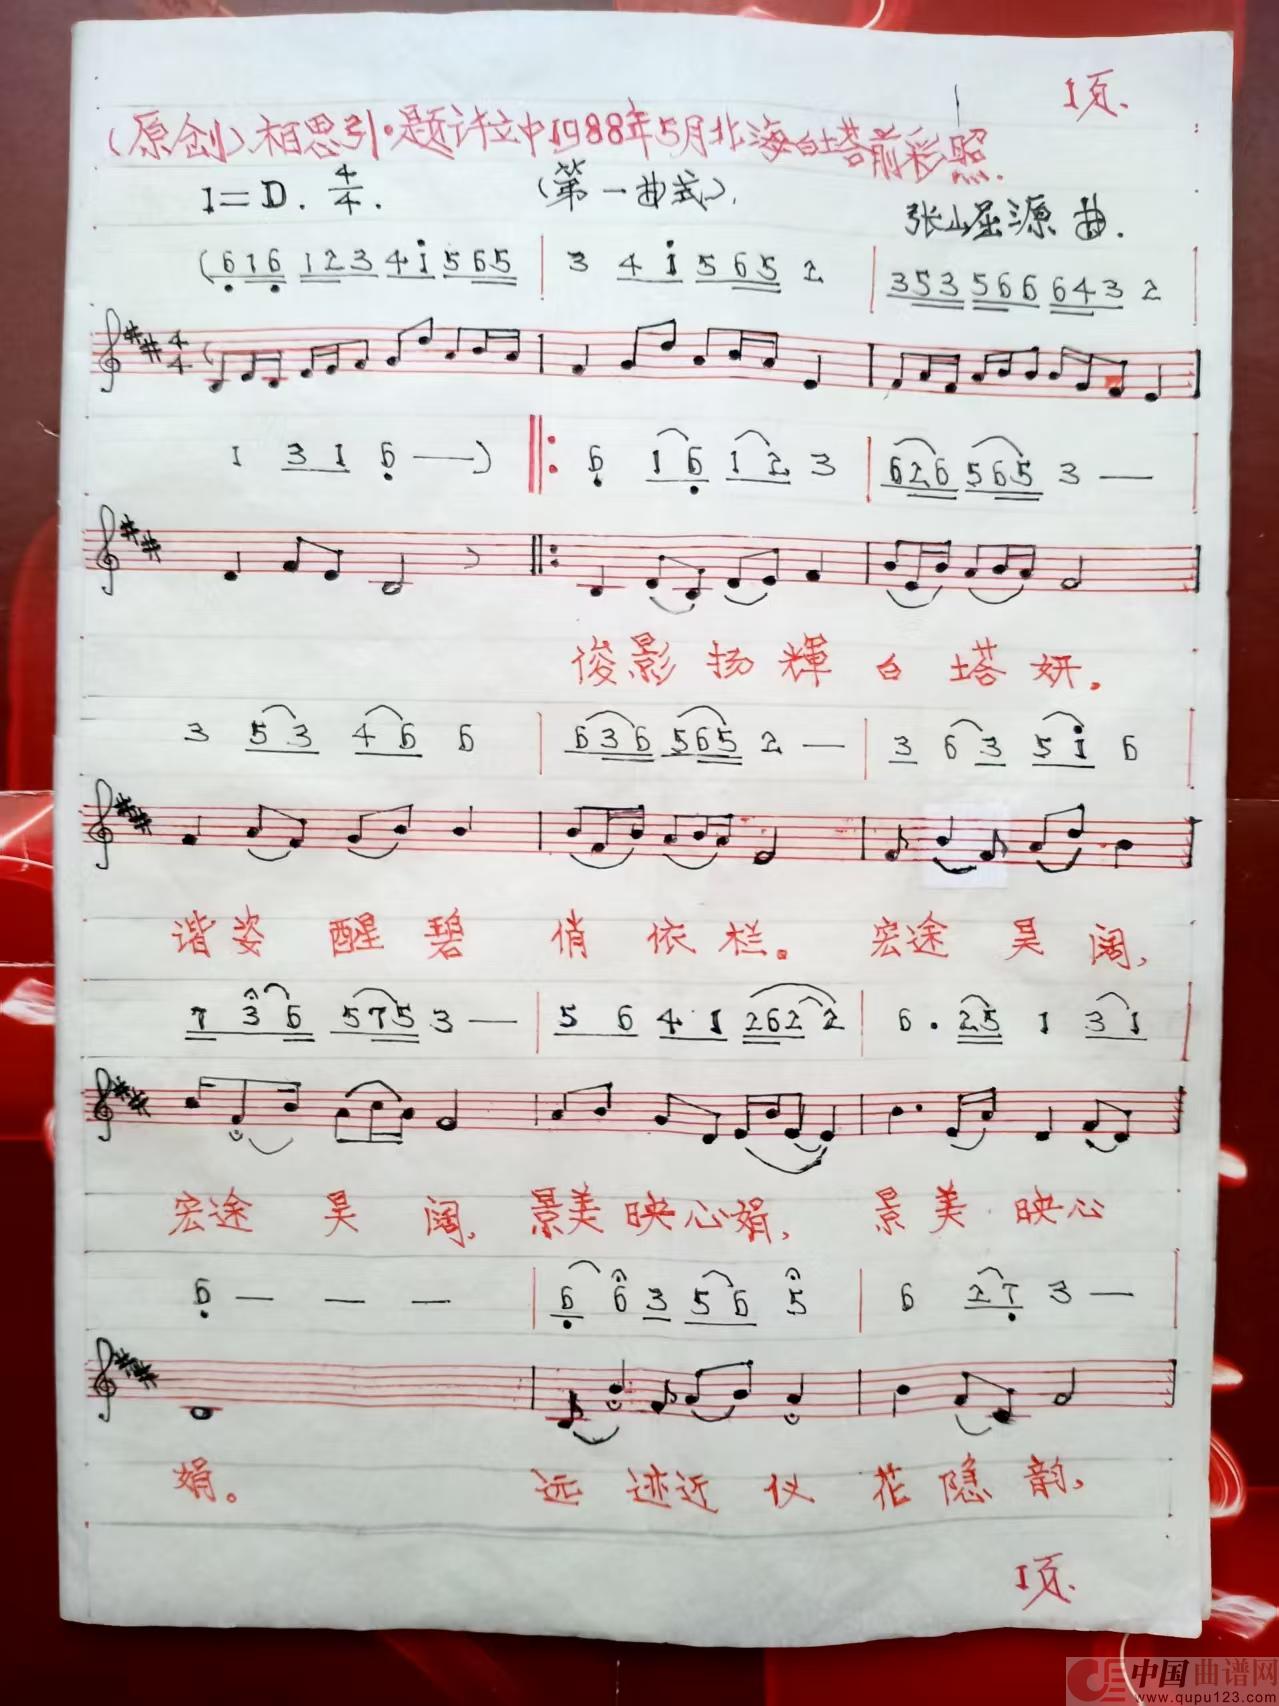 1页.
(原创)相思引·题许立中1988年5月北海白塔前彩照.
1=D. 4/4. (第一曲式).
张山屈源 曲.
(616 123 41 565 | 3 41 565 2 | 353 566 643 2
1 31 6 —) ‖: 6 16 12 3 | 626 565 3 —
俊影扬輝白塔妍。
3 53 46 6 | 636 565 2 — | 3 6 3 51 6
谐姿醒碧俏依栏。宏途昊阔,
7 3 6 575 3 — | 56 41 262 2 | 6. 25 1 31
宏途昊阔,景美映心娟,景美映心
6 — — — | 6 6 3 56 5 | 6 27 3 —
娟。远迹近仪花隐韵,
1页.
中国曲谱网
www.qupu123.com